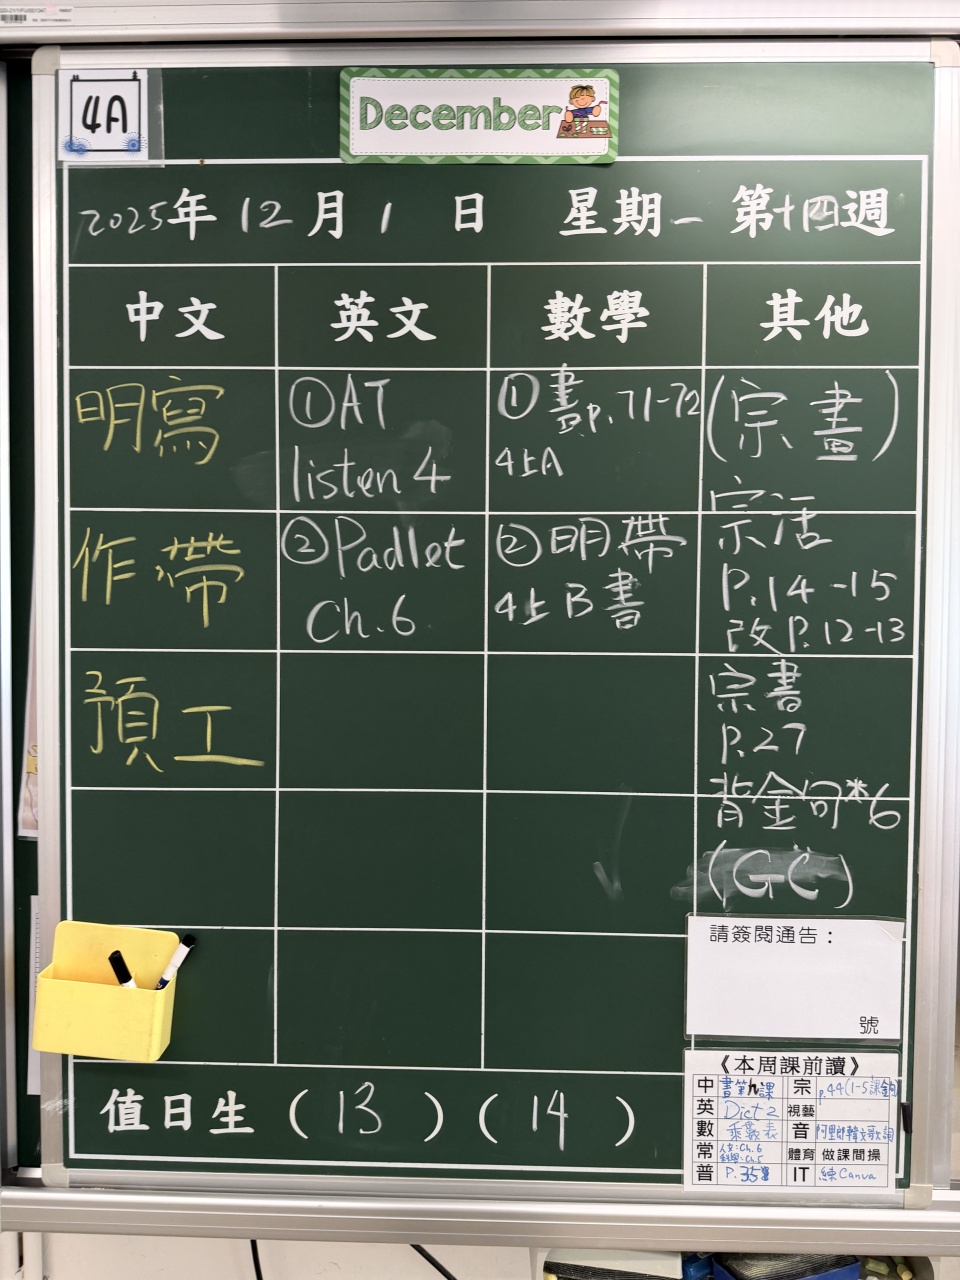 4A
December
2025年12月1日 星期一 第十四週
中文 英文 數學 其他
明寫
作帶
預工
①AT
listen 4
②Padlet
Ch.6
①書P.71-72
4上A
②明帶
4上B書
(宗書)
宗活
P.14-15
改P.12-13
宗書
P.27
背金句*6
(GC)
請簽閱通告：
號
《本周課前讀》
中 書第 課 宗 P.44(1-5課金句)
英 Dict 2 視藝
數 乘數表 音 阿里郎韓文歌詞
常 人文:Ch.6 科學:Ch.5 體育 做課間操
普 P.35 IT 練Canva
值日生 (13) (14)